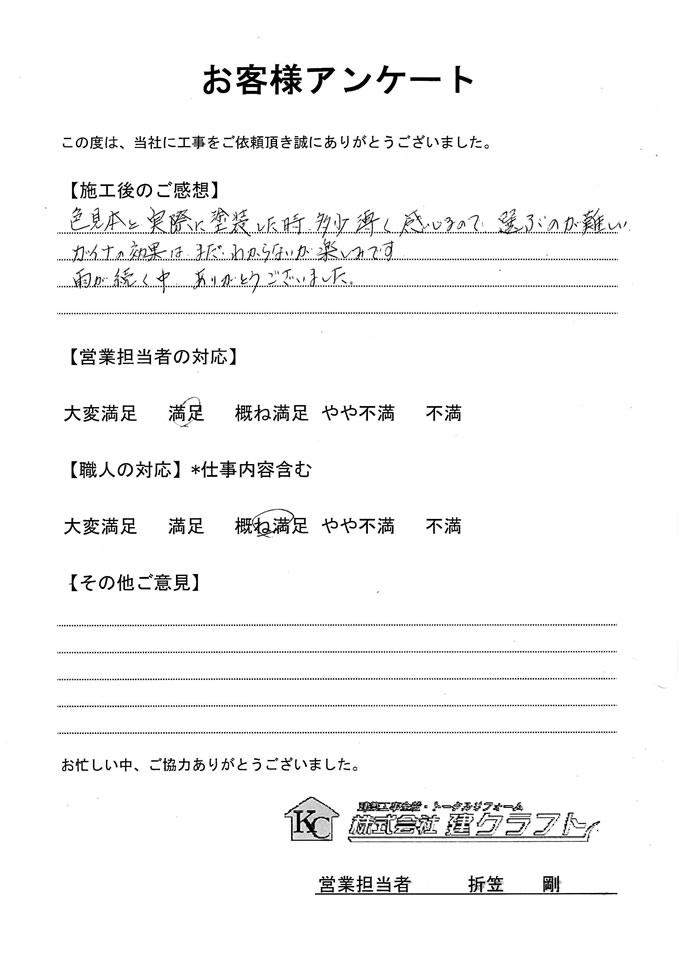 お客様アンケート
この度は、当社に工事をご依頼頂き誠にありがとうございました。
【施工後のご感想】
色見本と実際に塗装した時、多少薄く感じるので、選ぶのが難しい
ガイナの効果は、まだわからないが楽しみです
雨が続く中、ありがとうございました。
【営業担当者の対応】
大変満足 満足 概ね満足 やや不満 不満
【職人の対応】*仕事内容含む
大変満足 満足 概ね満足 やや不満 不満
【その他ご意見】
お忙しい中、ご協力ありがとうございました。
KC
建築工事全般・トータルリフォーム
株式会社 建クラフト
営業担当者 折笠 剛